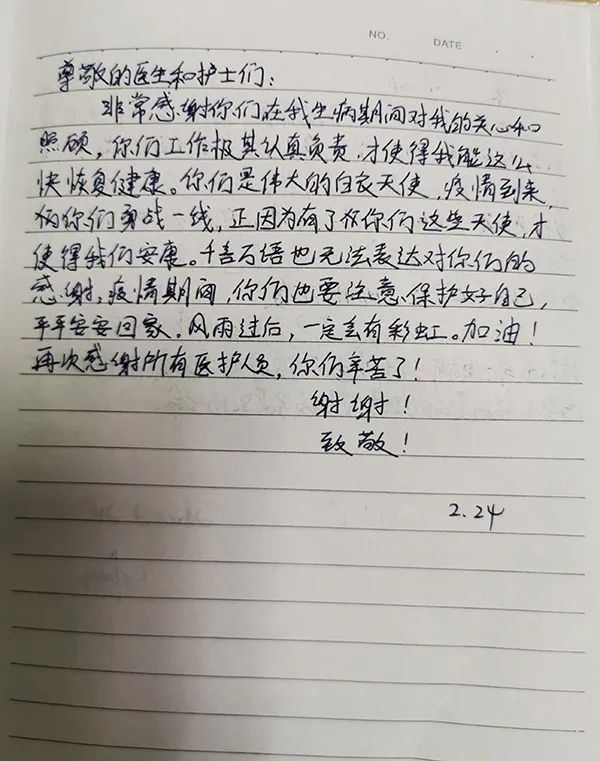 NO.
DATE
尊敬的医生和护士们：
非常感谢你们在我生病期间对我的关心和
照顾，你们工作极其认真负责，才使得我能这么
快恢复健康。你们是伟大的白衣天使，疫情到来，
你们勇战一线，正因为有了你们这些天使，才
使得我们安康。千言万语也无法表达对你们的
感谢，疫情期间，你们也要注意保护好自己，
平平安安回家。风雨过后，一定会有彩虹。加油！
再次感谢所有医护人员，你们辛苦了！
谢谢！
致敬！
2.24